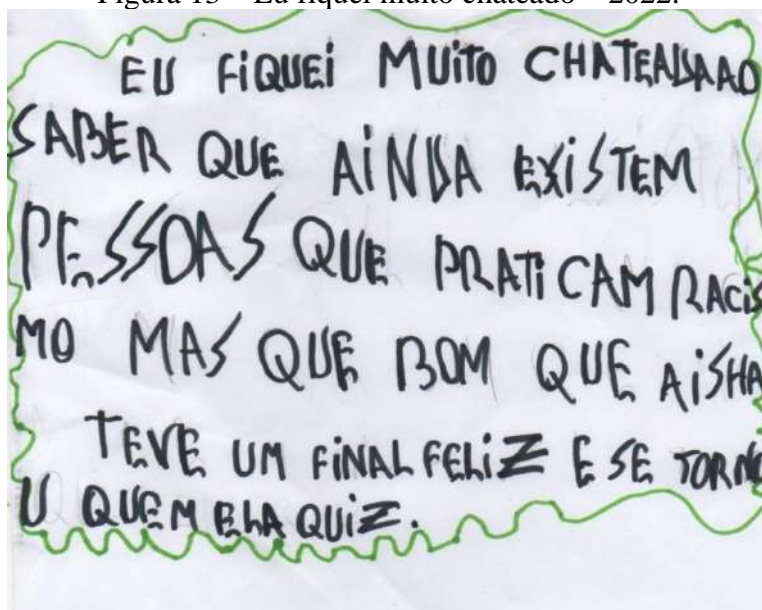 Figura 13 – Eu fiquei muito chateado – 2022.
EU FiQUEi MUiTO CHATEADO AO
SABER QUE AiNDA EXiSTEM
PESSOAS QUE PRATiCAM RACiS
MO MAS QUE BOM QUE AiSHA
TEVE UM FiNAL FELiZ E SE TORNO
U QUEM ELA QUiZ.